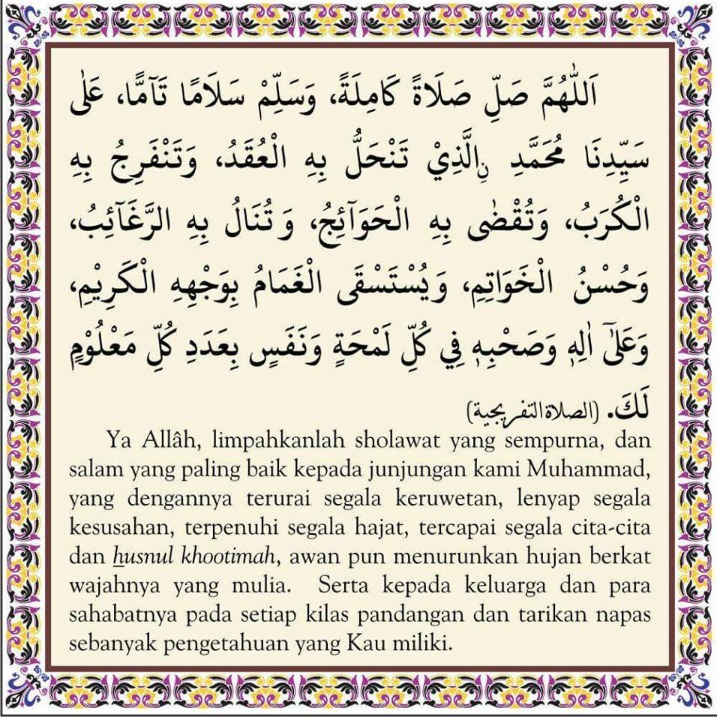 اَللّٰهُمَّ صَلِّ صَلَاةً كَامِلَةً، وَسَلِّمْ سَلَامًا تَآمًّا، عَلٰى
سَيِّدِنَا مُحَمَّدِ نِالَّذِيْ تَنْحَلُّ بِهِ الْعُقَدُ، وَتَنْفَرِجُ بِهِ
الْكُرَبُ، وَتُقْضٰى بِهِ الْحَوَآئِجُ، وَتُنَالُ بِهِ الرَّغَآئِبُ،
وَحُسْنُ الْخَوَاتِمِ، وَيُسْتَسْقَى الْغَمَامُ بِوَجْهِهِ الْكَرِيْمِ،
وَعَلٰٓى اٰلِهٖ وَصَحْبِهٖ فِي كُلِّ لَمْحَةٍ وَنَفَسٍ بِعَدَدِ كُلِّ مَعْلُوْمٍ
لَكَ. (الصلاة التفريجية)
Ya Allâh, limpahkanlah sholawat yang sempurna, dan
salam yang paling baik kepada junjungan kami Muhammad,
yang dengannya terurai segala keruwetan, lenyap segala
kesusahan, terpenuhi segala hajat, tercapai segala cita-cita
dan husnul khootimah, awan pun menurunkan hujan berkat
wajahnya yang mulia. Serta kepada keluarga dan para
sahabatnya pada setiap kilas pandangan dan tarikan napas
sebanyak pengetahuan yang Kau miliki.